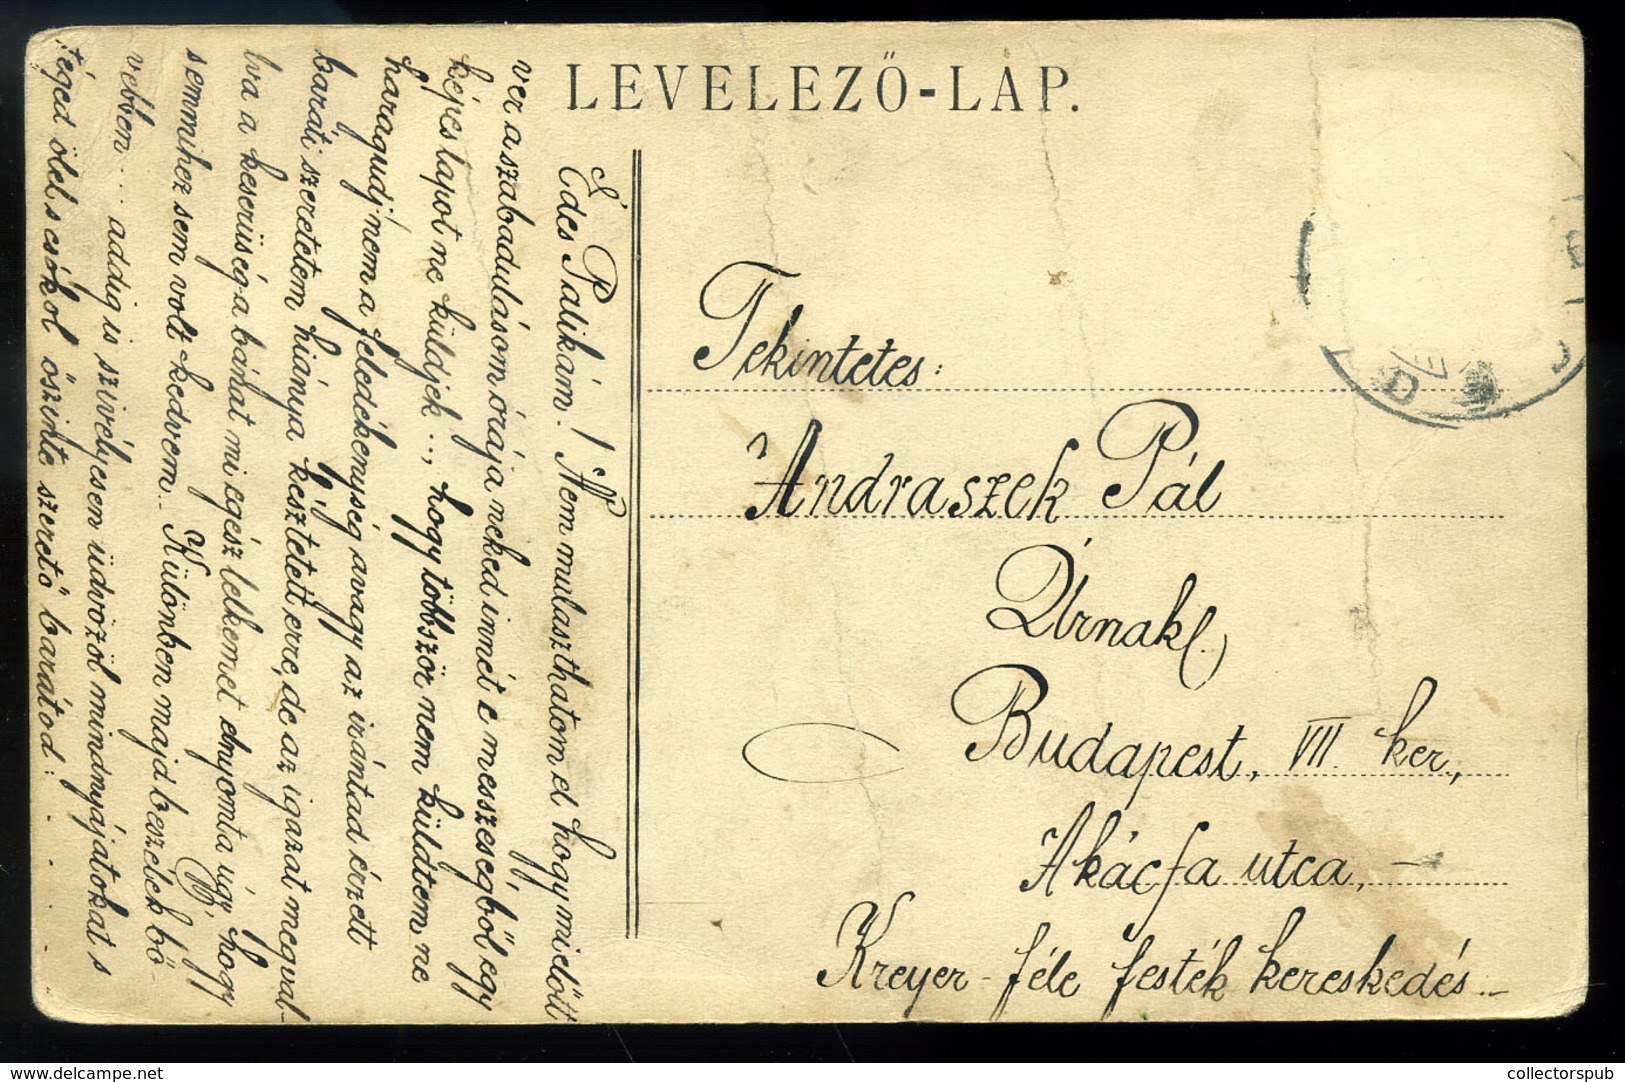 LEVELEZŐ-LAP.
Édes Palikám! Nem mulaszthatom el hogy mielőtt
ver a szabadulásom órája neked innét e messzeségből egy
képes lapot ne küldjek .., hogy többször nem küldtem ne
haragudj nem a feledékenység avagy az irántad érzett
baráti szeretetem hiánya késztetett erre, de az igazat megval-
lva a keserüség a bánat mi egész lelkemet elnyomta úgy, hogy
semmihez sem volt kedvem. Különben majd beszélek bő-
vebben ... addig is szivélyesen üdvözöl mindnyájatokat s
téged ölel s csókol őszinte szerető barátod:
Tekintetes:
Andraszek Pál
Úrnak
Budapest, VII. ker,
Akácfa utca,
Kreyer-féle festék kereskedés
delcampe.net
collectorspub